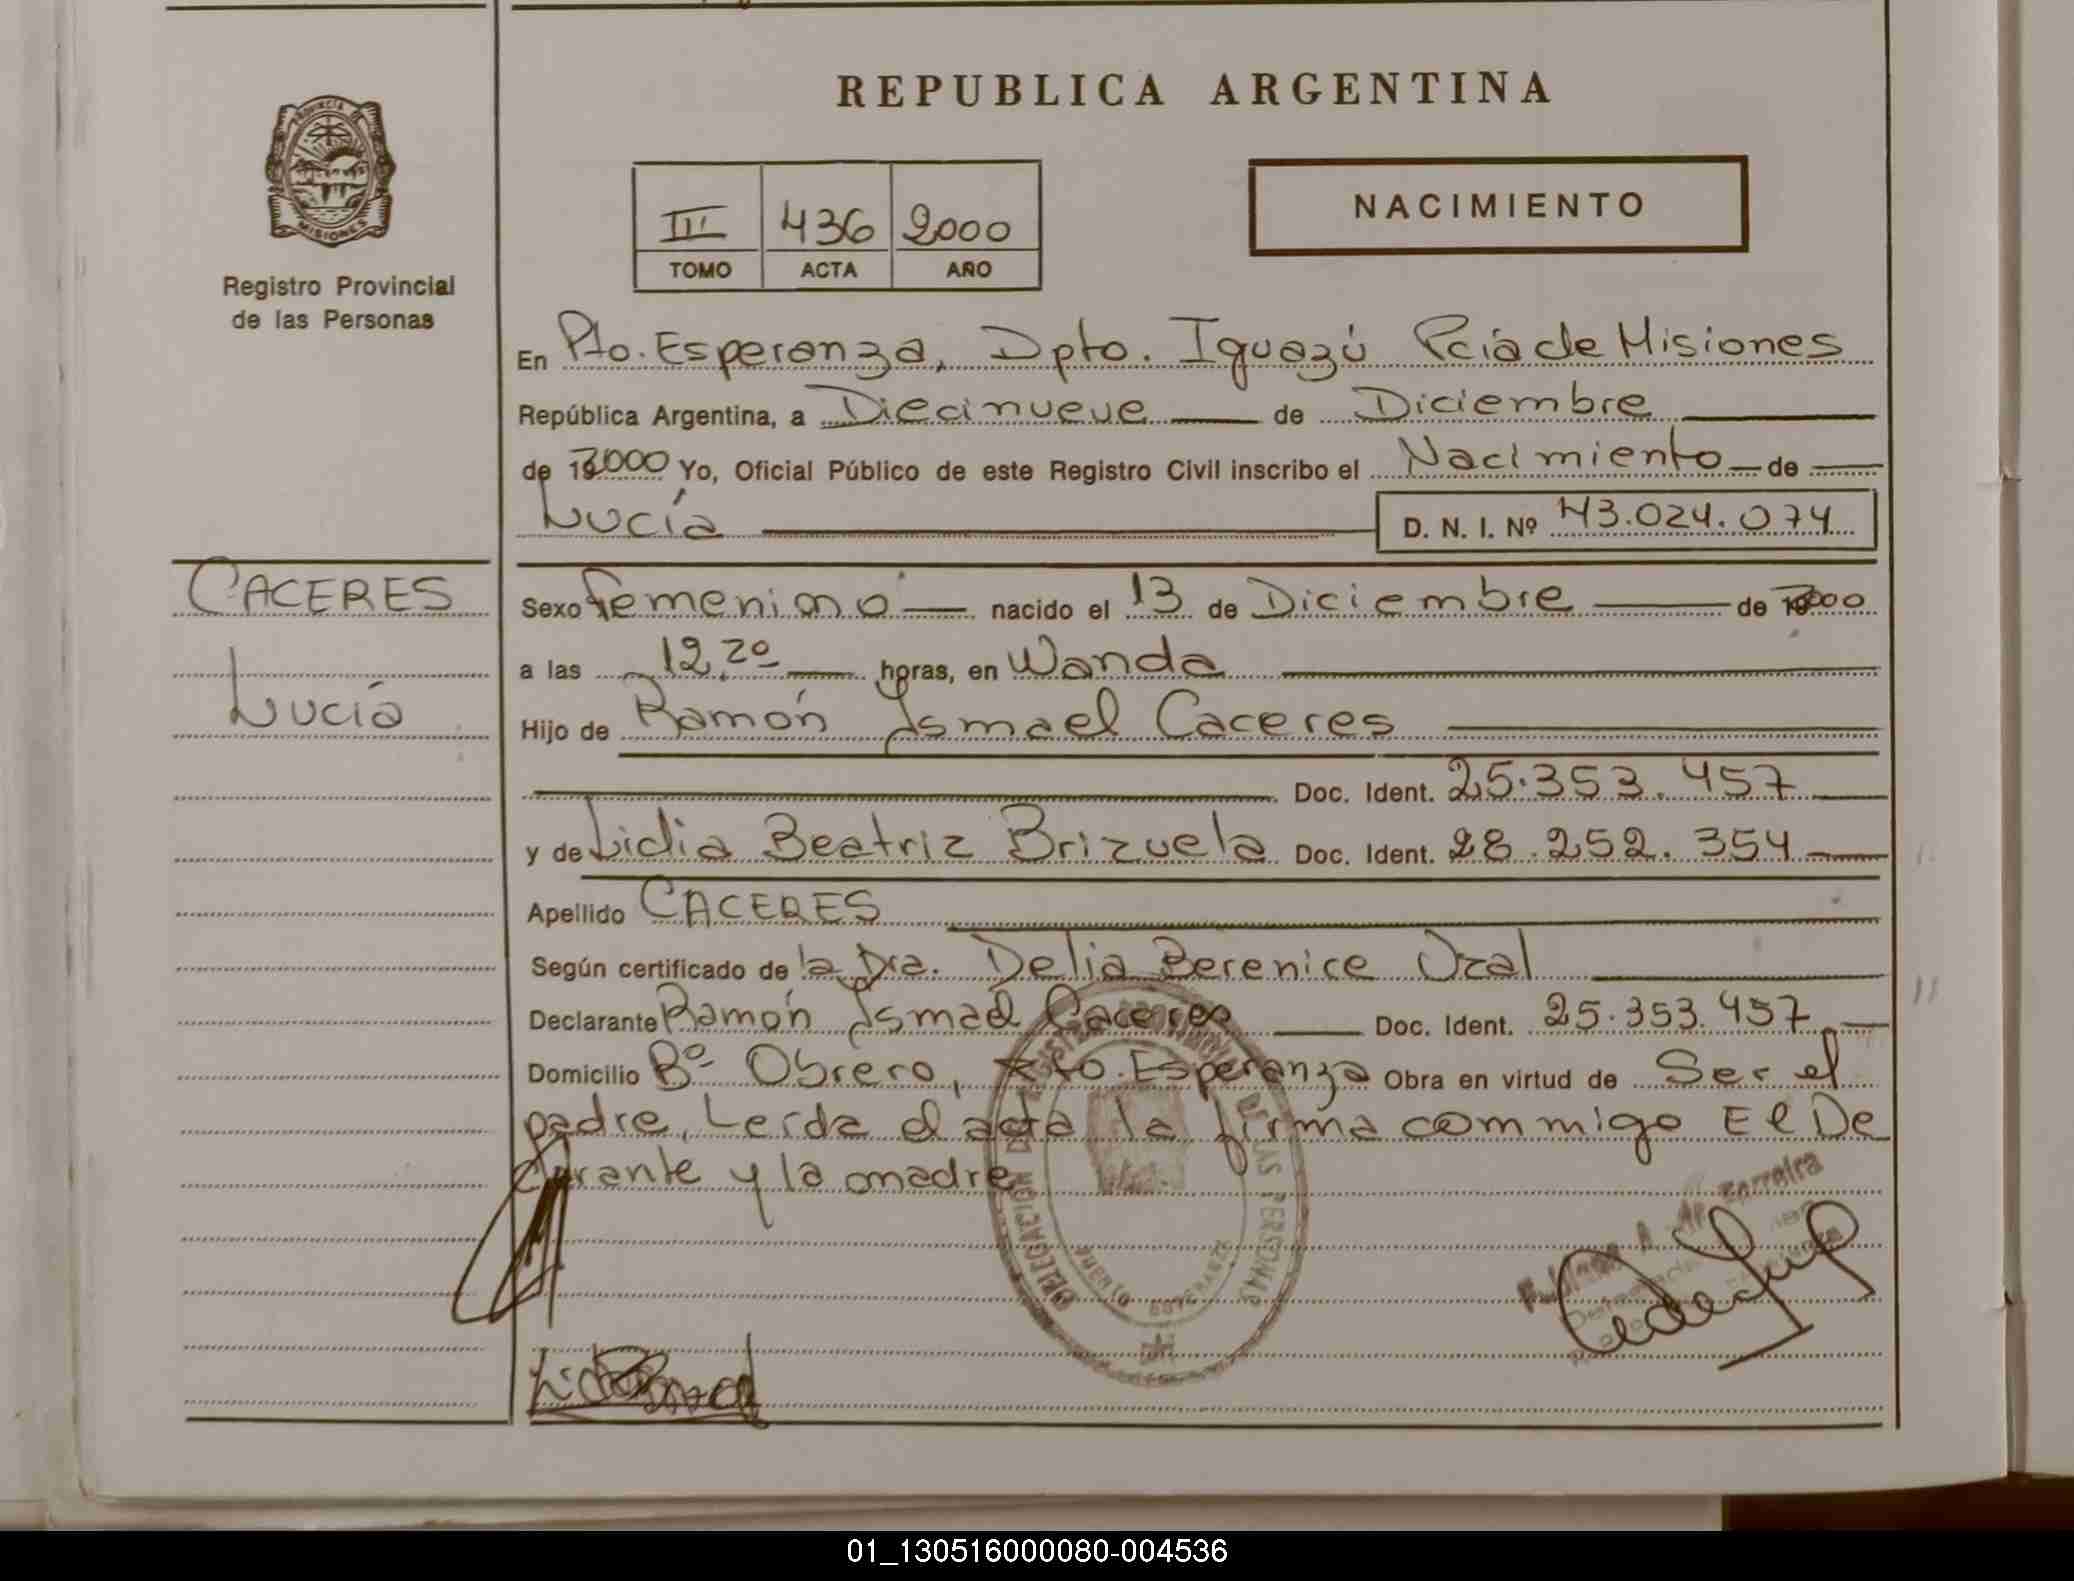 REPUBLICA ARGENTINA
PROVINCIA
MISIONES
Registro Provincial
de las Personas
III 436 2000
TOMO ACTA AÑO
NACIMIENTO
En Pto. Esperanza, Dpto. Iguazú Pcia de Misiones
República Argentina, a Diecinueve de Diciembre
de 2000 Yo, Oficial Público de este Registro Civil inscribo el Nacimiento de
Lucía D. N. I. Nº 43.024.074
CACERES
Lucía
Sexo femenino nacido el 13 de Diciembre de 2000
a las 12,20 horas, en Wanda
Hijo de Ramón Ismael Caceres
Doc. Ident. 25.353.457
y de Lidia Beatriz Brizuela Doc. Ident. 28.252.354
Apellido CACERES
Según certificado de la Dra. Delia Berenice
Declarante Ramón Ismael Caceres Doc. Ident. 25.353.457
Domicilio Bº Obrero, Pto. Esperanza Obra en virtud de Ser el
padre, Leida el acta la firma commigo El De
clarante y la madre
DELEGACION REGISTRO PROVINCIAL DE LAS PERSONAS
PUERTO ESPERANZA
Ferreira
01_130516000080-004536